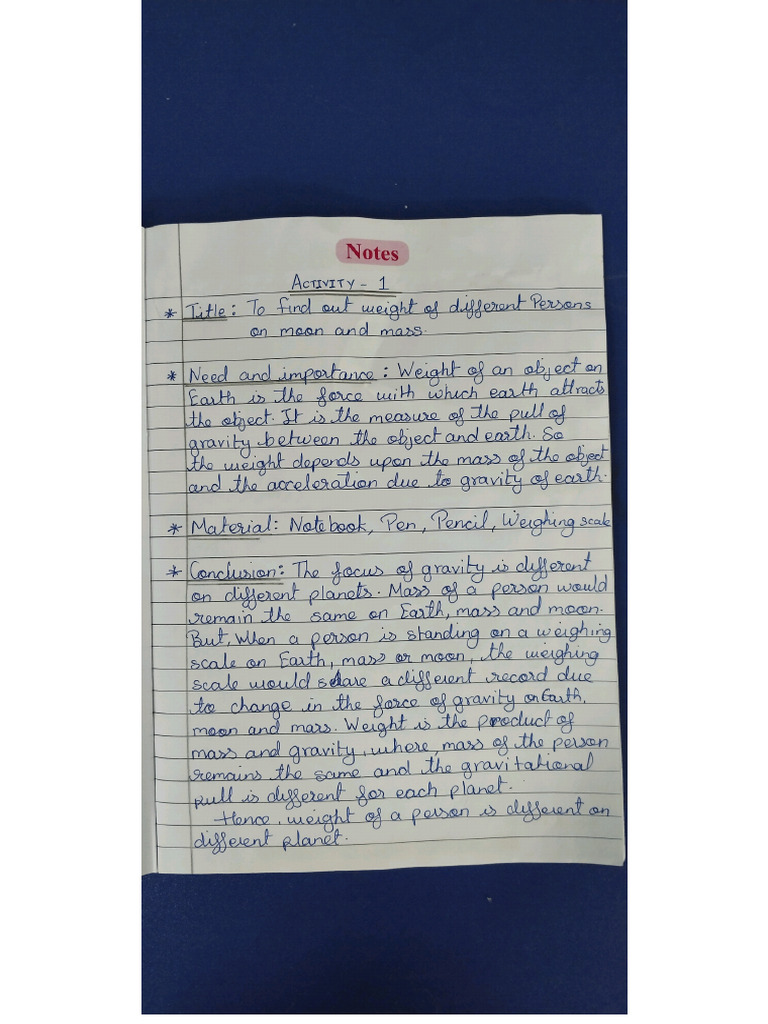 Notes
ACTIVITY - 1
* Title: To find out weight of different Persons
on moon and mass.
* Need and importance: Weight of an object on
Earth is the force with which earth attracts
the object. It is the measure of the pull of
gravity between the object and earth. So
the weight depends upon the mass of the object
and the acceleration due to gravity of earth.
* Material: Notebook, Pen, Pencil, Weighing scale
* Conclusion: The focus of gravity is different
on different planets. Mass of a person would
remain the same on Earth, mass and moon.
But, When a person is standing on a weighing
scale on Earth, mass or moon, the weighing
scale would a different record due
to change in the force of gravity on Earth,
moon and mars. Weight is the product of
mass and gravity, where, mass of the person
remains the same and the gravitational
pull is different for each planet.
Hence, weight of a person is different on
different planet.